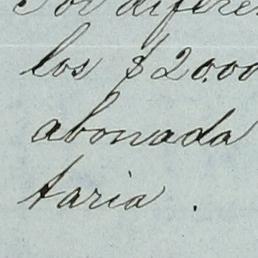 Por difere
los $2000
abonada
taria.